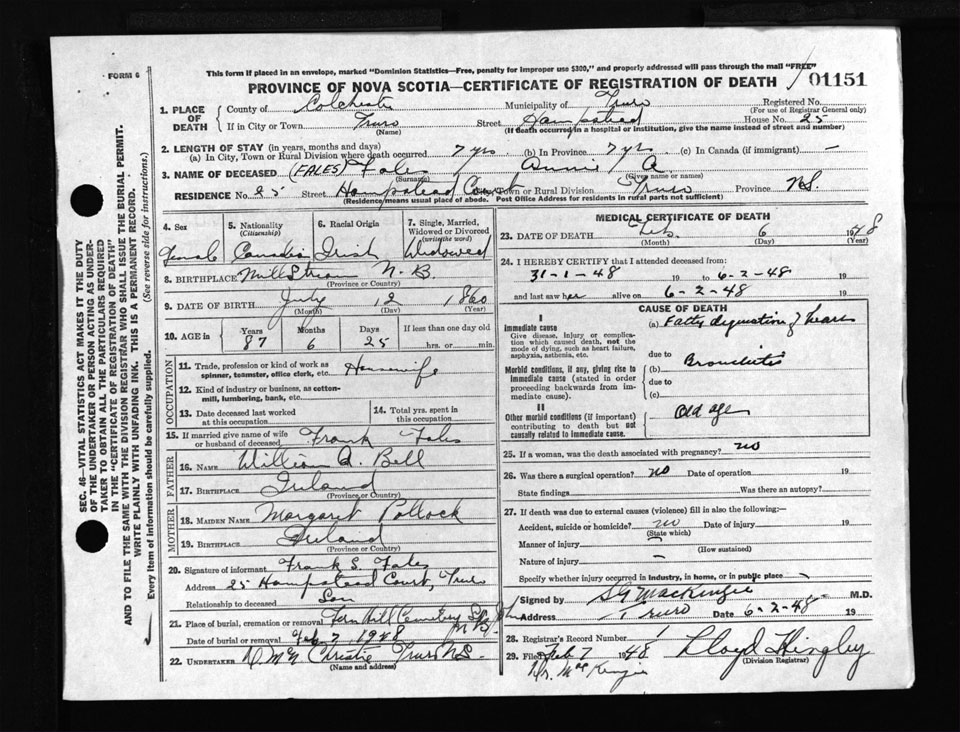 FORM 6
This form if placed in an envelope, marked "Dominion Statistics—Free, penalty for improper use $300," and properly addressed will pass through the mail "FREE"
PROVINCE OF NOVA SCOTIA—CERTIFICATE OF REGISTRATION OF DEATH / 01151
1. PLACE OF DEATH
County of Colchester Municipality of Truro Registered No.
(For use of Registrar General only)
If in City or Town Truro Street Hampstead House No. 25
(Name) (If death occurred in a hospital or institution, give the name instead of street and number)
2. LENGTH OF STAY (in years, months and days)
(a) In City, Town or Rural Division where death occurred 7 yrs (b) In Province 7 yrs (c) In Canada (if immigrant) —
3. NAME OF DECEASED (FALES) Fales Annie A
(Surname) (Given name or names)
RESIDENCE No. 25 Street Hampstead Court City, Town or Rural Division Truro Province N.S.
(Residence means usual place of abode. Post Office Address for residents in rural parts not sufficient)
4. Sex
Female
5. Nationality
(Citizenship)
Canadian
6. Racial Origin
Irish
7. Single, Married, Widowed or Divorced
(write the word)
Widowed
8. BIRTHPLACE Mill Stream N. B.
(Province or Country)
9. DATE OF BIRTH July 12 1860
(Month) (Day) (Year)
10. AGE in Years Months Days If less than one day old
87 6 25 hrs. or min.
OCCUPATION
11. Trade, profession or kind of work as spinner, teamster, office clerk, etc. Housewife
12. Kind of industry or business, as cotton-mill, lumbering, bank, etc.
13. Date deceased last worked at this occupation
14. Total yrs. spent in this occupation
15. If married give name of wife or husband of deceased Frank Fales
FATHER
16. NAME William A. Bell
17. BIRTHPLACE Ireland
(Province or Country)
MOTHER
18. MAIDEN NAME Margaret Pollock
19. BIRTHPLACE Ireland
(Province or Country)
20. Signature of informant Frank S. Fales
Address 25 Hampstead Court, Truro
Relationship to deceased Son
21. Place of burial, cremation or removal Fern Hill Cemetery St John N B
Date of burial or removal Feb 7 1948
22. UNDERTAKER D. McN Christie Truro N.S.
(Name and address)
MEDICAL CERTIFICATE OF DEATH
23. DATE OF DEATH Feb. 6 1948
(Month) (Day) (Year)
24. I HEREBY CERTIFY that I attended deceased from:
31-1-48 19 to 6-2-48 19
and last saw her alive on 6-2-48 19
CAUSE OF DEATH
I
Immediate cause
Give disease, injury or complication which caused death, not the mode of dying, such as heart failure, asphyxia, asthenia, etc.
(a) Fatty degeneration of heart
due to
Morbid conditions, if any, giving rise to immediate cause (stated in order proceeding backwards from immediate cause).
(b) Bronchitis
due to
(c)
II
Other morbid conditions (if important) contributing to death but not causally related to immediate cause.
Old age
25. If a woman, was the death associated with pregnancy? no
26. Was there a surgical operation? no Date of operation 19
State findings Was there an autopsy?
27. If death was due to external causes (violence) fill in also the following:—
Accident, suicide or homicide? no Date of injury 19
(State which)
Manner of injury —
(How sustained)
Nature of injury —
Specify whether injury occurred in industry, in home, or in public place
Signed by S G MacKenzie M.D.
Address Truro Date 6-2-48 19
28. Registrar's Record Number 1
29. Filed Feb 7 1948 Lloyd Hingley
(Division Registrar)
Dr. MacKenzie
SEC. 46—VITAL STATISTICS ACT MAKES IT THE DUTY
OF THE UNDERTAKER OR PERSON ACTING AS UNDER-
TAKER TO OBTAIN ALL THE PARTICULARS REQUIRED
IN THE "CERTIFICATE OF REGISTRATION OF DEATH"
AND TO FILE THE SAME WITH THE DIVISION REGISTRAR WHO SHALL ISSUE THE BURIAL PERMIT.
WRITE PLAINLY WITH UNFADING INK. THIS IS A PERMANENT RECORD.
Every item of information should be carefully supplied. (See reverse side for instructions.)